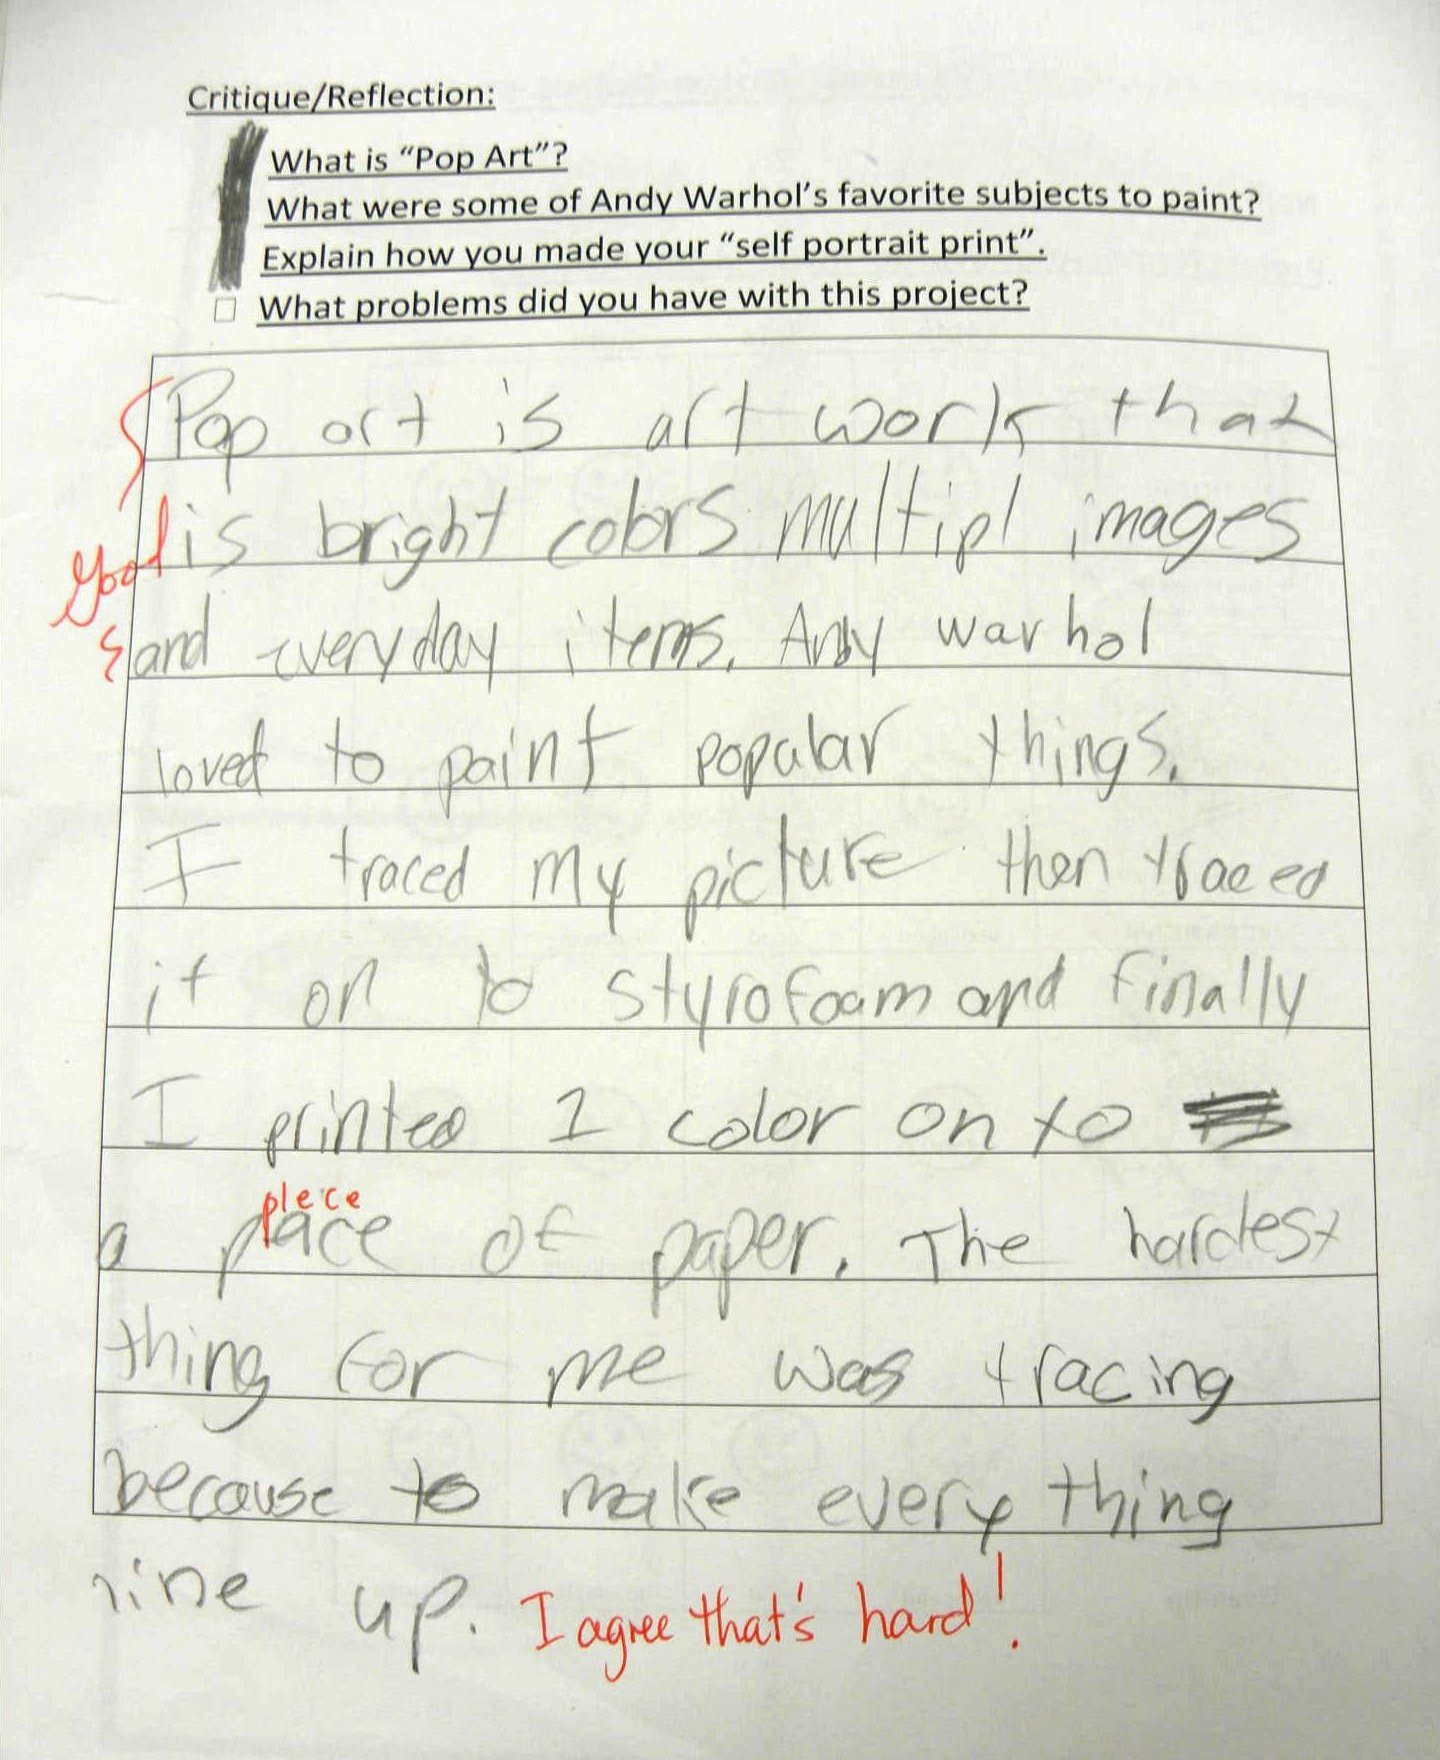 Critique/Reflection:
What is "Pop Art"?
What were some of Andy Warhol's favorite subjects to paint?
Explain how you made your "self portrait print".
□ What problems did you have with this project?
Pop art is art work that
Good is bright colors multipl images
and everyday items. Andy warhol
loved to paint popular things.
I traced my picture then traced
it on to styrofoam and finally
I printed 1 color on to
piece
a place of paper. The hardest
thing for me was tracing
because to make every thing
line up. I agree that's hard!